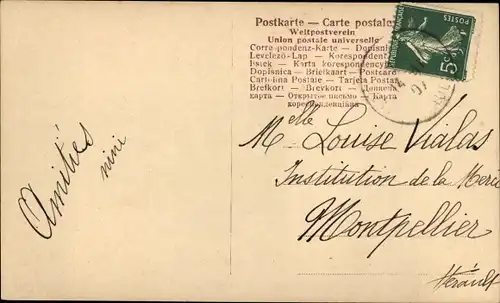 Postkarte — Carte postale
Weltpostverein
Union postale universelle
Correspondenz-Karte — Dopisni
Levelező-Lap — Korespondent
Listek — Karta korespondency
Dopisnica — Briefkaart — Postcard
Cartolina Postale — Tarjeta Postal
Brefkort — Brevkort — Dopisna
карта — Открытое письмо — karta
кореспонденційна
REPUBLIQUE FRANÇAISE
POSTES
5c
07
Amitiés
nini
Melle Louise Vialas
Institution de la Merci
Montpellier
Hérault